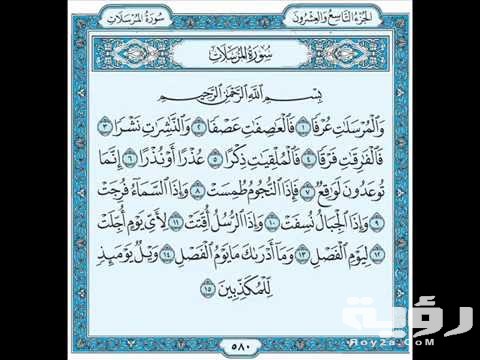 الجزء التاسع والعشرون
سورة المرسلات
سُورَةُ المُرْسَلَات
بِسْمِ اللَّهِ الرَّحْمَٰنِ الرَّحِيمِ
وَالْمُرْسَلَاتِ عُرْفًا ١ فَالْعَاصِفَاتِ عَصْفًا ٢ وَالنَّاشِرَاتِ نَشْرًا ٣
فَالْفَارِقَاتِ فَرْقًا ٤ فَالْمُلْقِيَاتِ ذِكْرًا ٥ عُذْرًا أَوْ نُذْرًا ٦ إِنَّمَا
تُوعَدُونَ لَوَاقِعٌ ٧ فَإِذَا النُّجُومُ طُمِسَتْ ٨ وَإِذَا السَّمَاءُ فُرِجَتْ
٩ وَإِذَا الْجِبَالُ نُسِفَتْ ١٠ وَإِذَا الرُّسُلُ أُقِّتَتْ ١١ لِأَيِّ يَوْمٍ أُجِّلَتْ
١٢ لِيَوْمِ الْفَصْلِ ١٣ وَمَا أَدْرَاكَ مَا يَوْمُ الْفَصْلِ ١٤ وَيْلٌ يَوْمَئِذٍ
لِلْمُكَذِّبِينَ ١٥
٥٨٠
رؤية
Roy2a.CoM